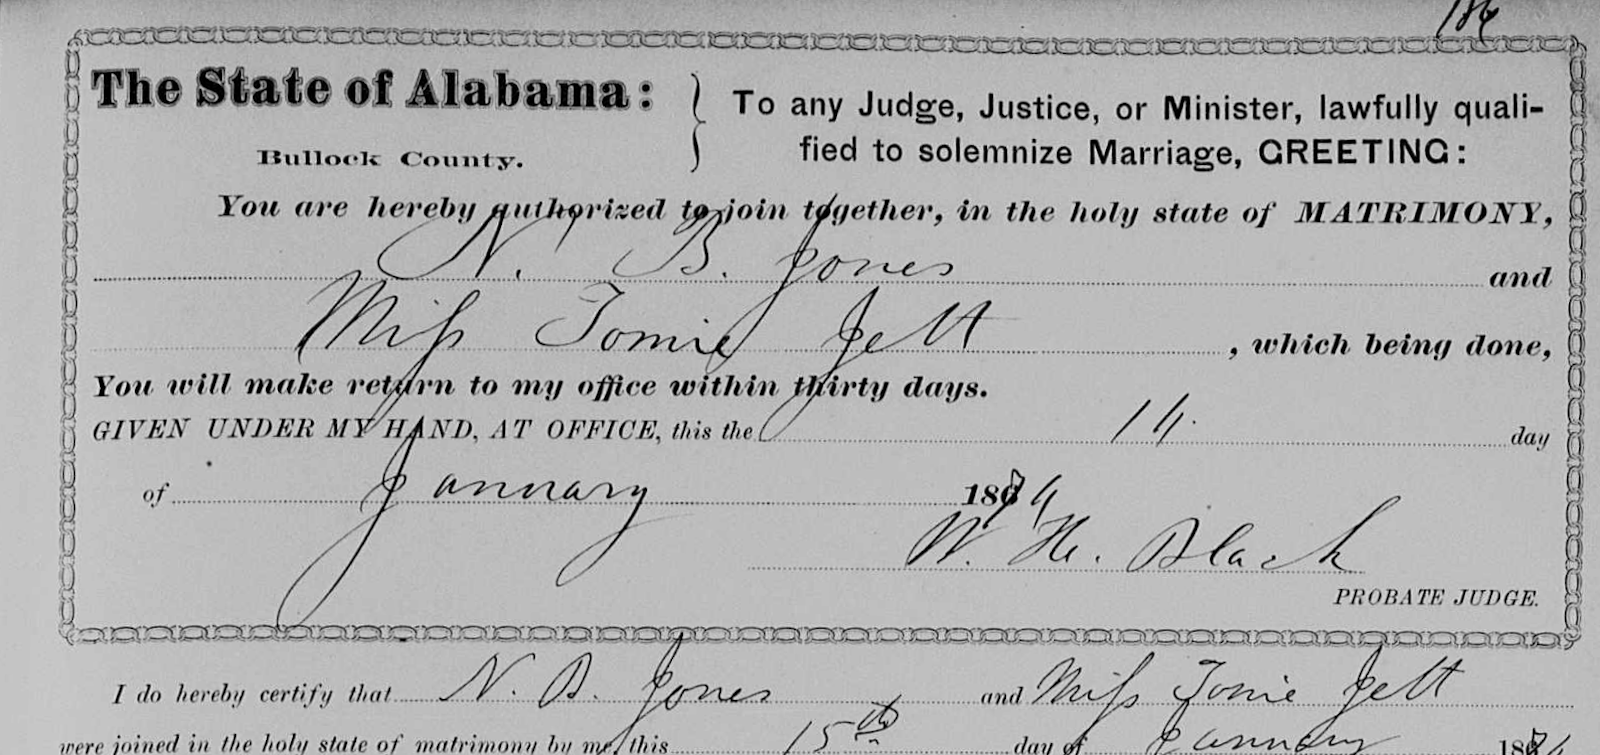 186
The State of Alabama:
Bullock County.
To any Judge, Justice, or Minister, lawfully quali-
fied to solemnize Marriage, GREETING:
You are hereby authorized to join together, in the holy state of MATRIMONY,
N. B. Jones and
Miss Tomie Jett, which being done,
You will make return to my office within thirty days.
GIVEN UNDER MY HAND, AT OFFICE, this the 14. day
of January 1874
W. H. Black
PROBATE JUDGE.
I do hereby certify that N. B. Jones and Miss Tomie Jett
were joined in the holy state of matrimony by me, this 15th day of January